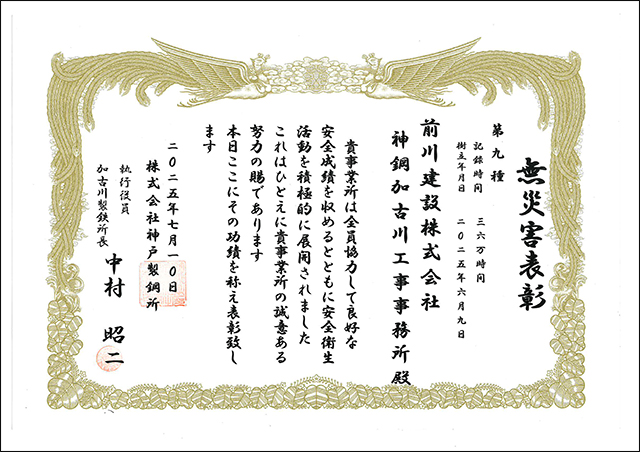 無災害表彰
第九種
記録時間 三六万時間
樹立年月日 二〇二五年六月九日
前川建設株式会社
神鋼加古川工事事務所殿
貴事業所は全員協力して良好な
安全成績を収めるとともに安全衛生
活動を積極的に展開されました
これはひとえに貴事業所の誠意ある
努力の賜であります
本日ここにその功績を称え表彰致し
ます
二〇二五年七月一〇日
株式会社神戸製鋼所
執行役員
加古川製鉄所長
中村 昭二